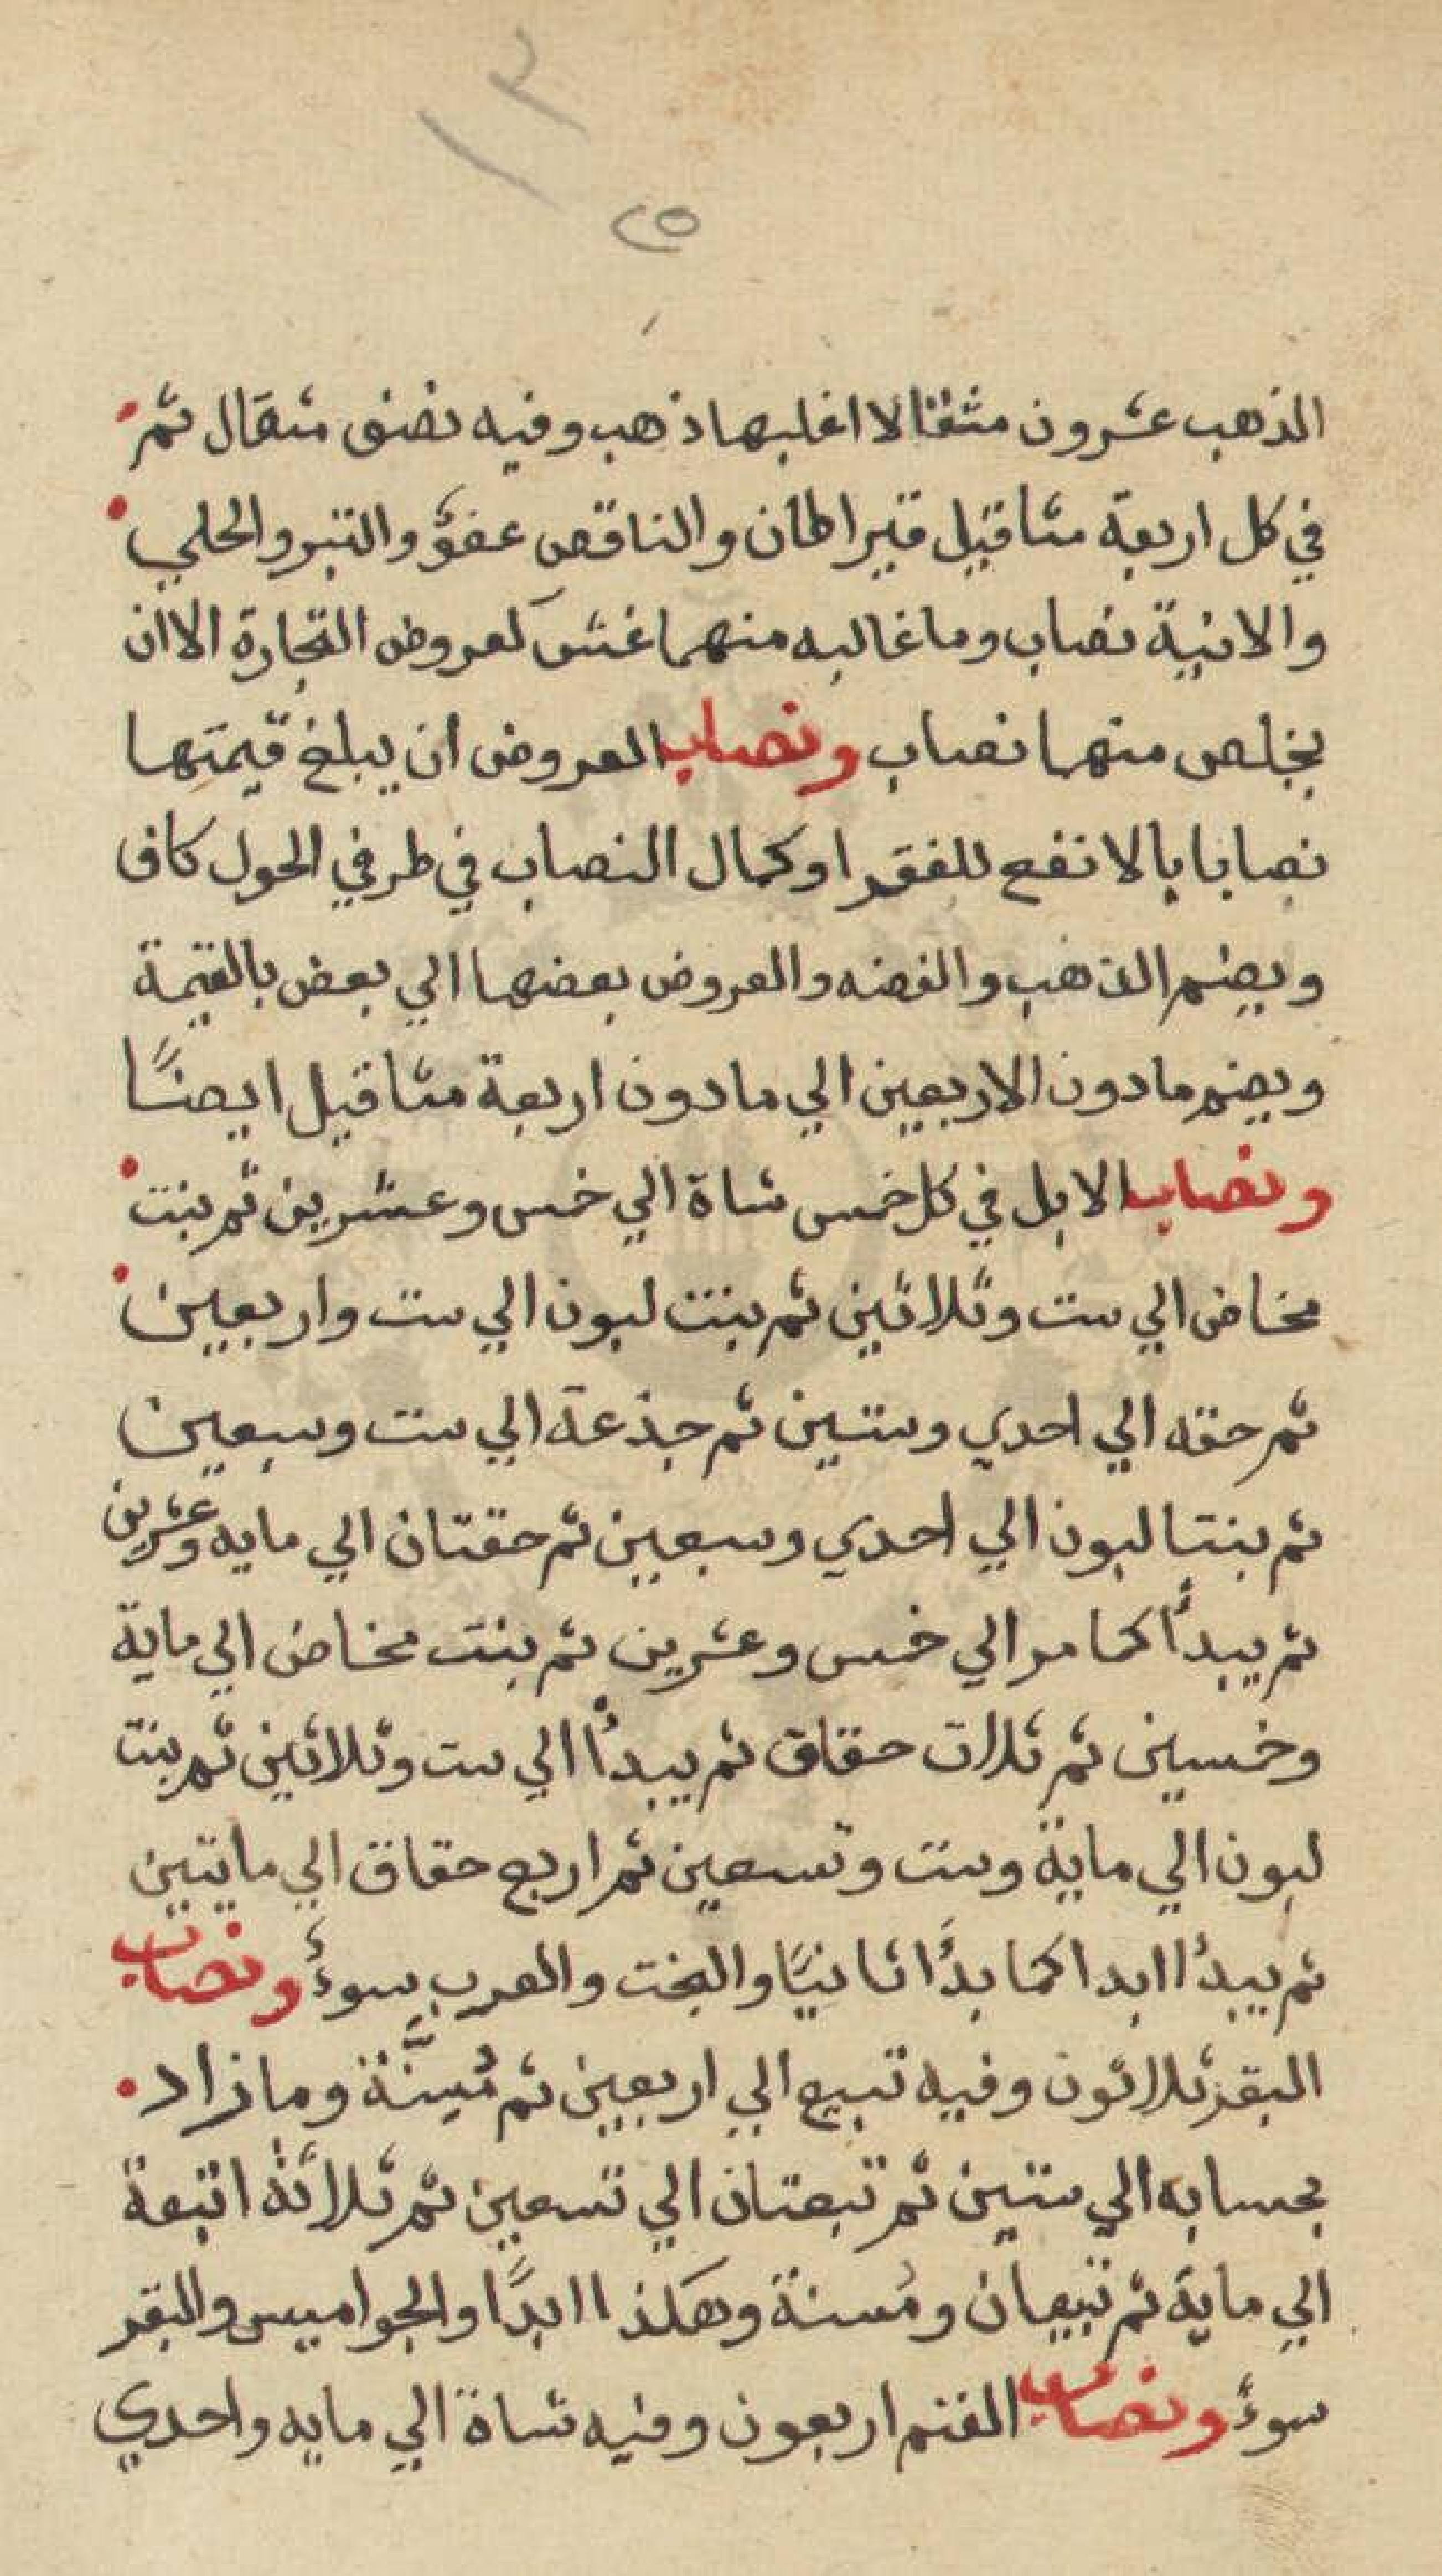 ١٣
٢٥
الذهب عشرون مثقالا اغلبها ذهب وفيه نصف مثقال ثم
في كل اربعة مثاقيل قيراطان والناقص عفوٌ والتبر والحلي
والانية نصاب وما غالبه منهما غش كعروض التجارة الا ان
يخلص منهما نصاب ونصاب العروض ان يبلغ قيمتها
نصابا بالانفع للفقرا وكمال النصاب في طرفي الحول كاف
ويضم الذهب والفضه والعروض بعضها الي بعض بالقيمة
ويضم ما دون الاربعين الي ما دون اربعة مثاقيل ايضًا
ونصاب الابل في كل خمس شاة الي خمس وعشرين ثم بنت
مخاض الي ست وثلاثين ثم بنت لبون الي ست واربعين
ثم حقه الي احدي وستين ثم جذعة الي ست وسبعين
ثم بنتا لبون الي احدي وسبعين ثم حقتان الي مايه وعشرين
ثم يبدأ كما مر الي خمس وعشرين ثم بنت مخاض الي ماية
وخمسين ثم ثلاث حقاق ثم يبدأ الي ست وثلاثين ثم بنت
لبون الي ماية وست وتسعين ثم اربع حقاق الي مايتين
ثم يبدأ ابدا كما بدًا ثانيًا والبخت والعرب سوءٌ ونصاب
البقر ثلاثون وفيه تبيع الي اربعين ثم مُسِنَّة وما زاد
بحسابه الي ستين ثم تبعتان الي تسعين ثم ثلاثة اتبعة
الي ماية ثم تبيعان ومُسنة وهكذا ابدًا والجواميس والبقر
سوءٌ ونصاب الغنم اربعون وفيه شاة الي مايه واحدي